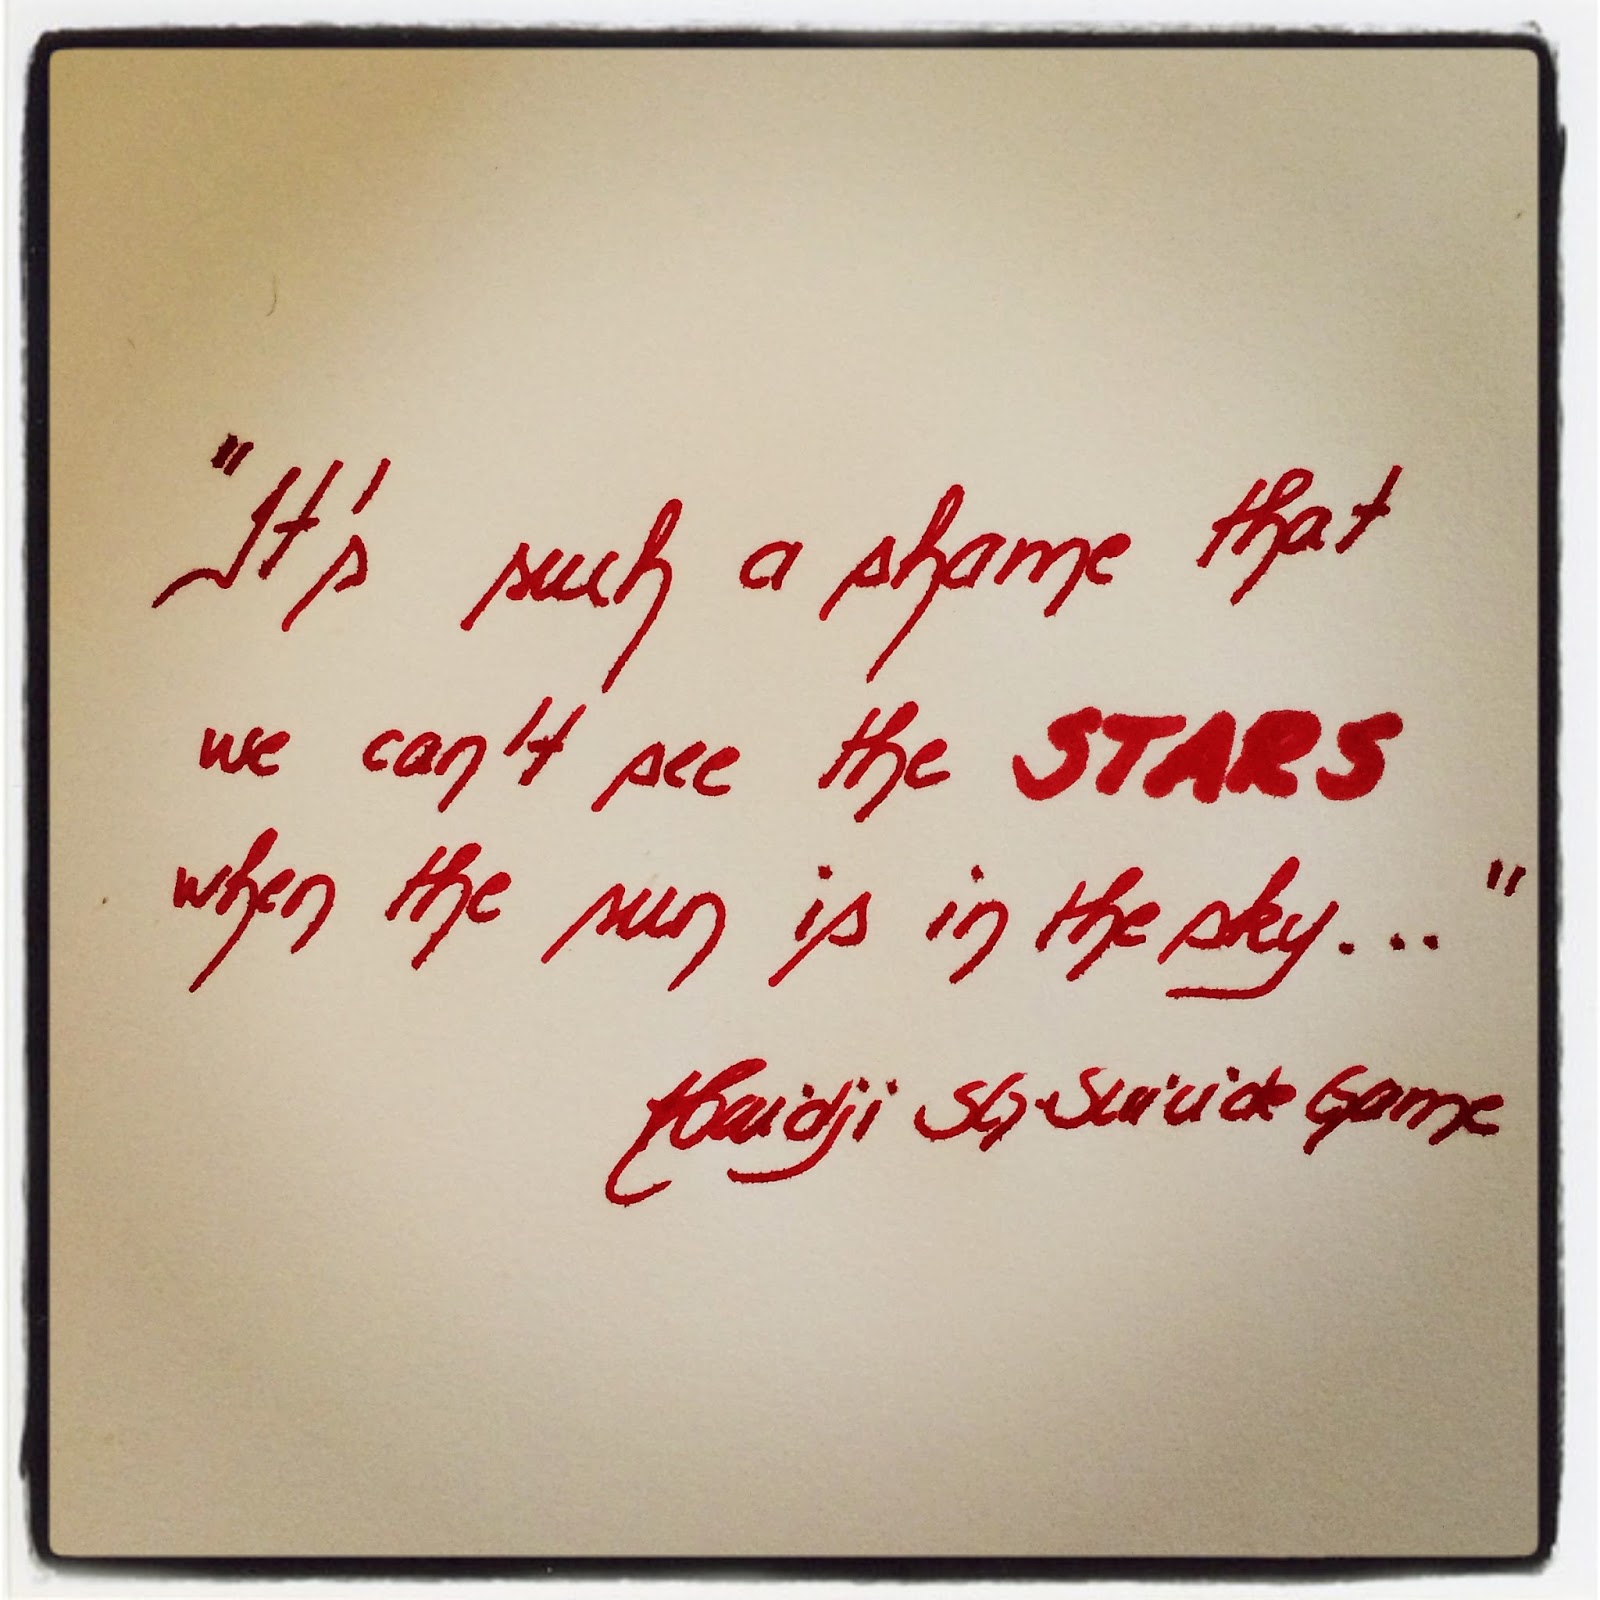 "It's such a shame that
we can't see the STARS
when the sun is in the sky..."
Haidji SG-Suicide Game